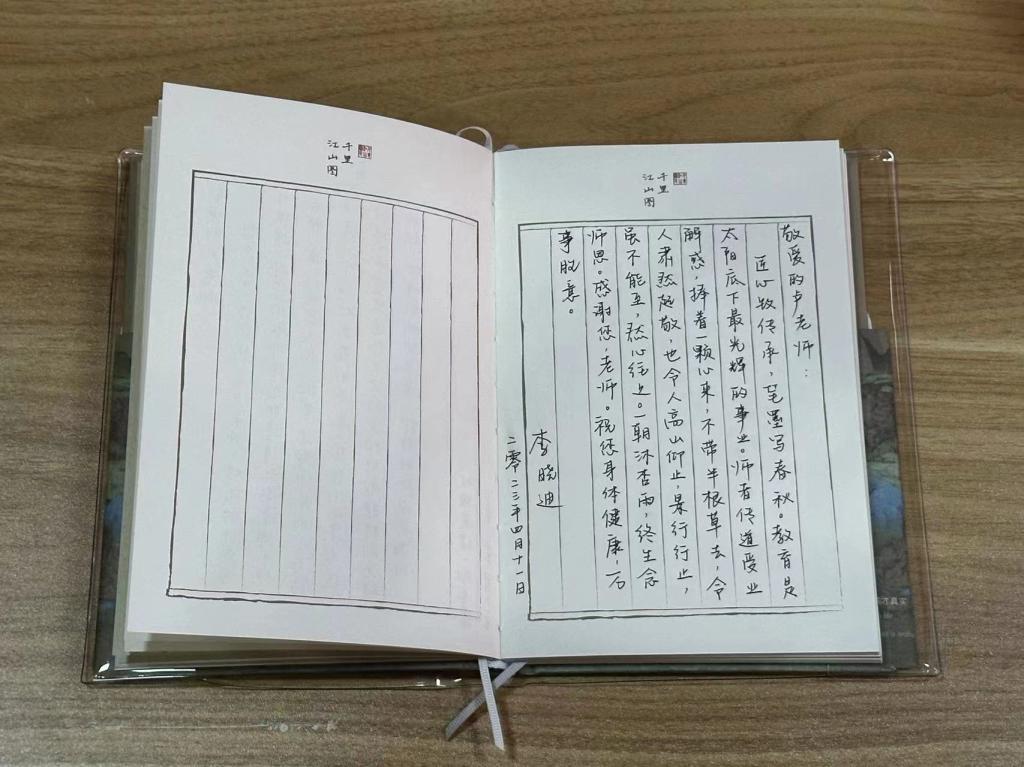 千里
江山图
千里
江山图
敬爱的卢老师：
匠心敬传承，笔墨写春秋。教育是
太阳底下最光辉的事业。师者传道受业
解惑，捧着一颗心来，不带半根草去，令
人肃然起敬，也令人高山仰止，景行行止，
虽不能至，然心往之。一朝沐杏雨，终生念
师恩。感谢您，老师。祝您身体健康，万
事胜意。
李晓迪
二零二三年四月十一日